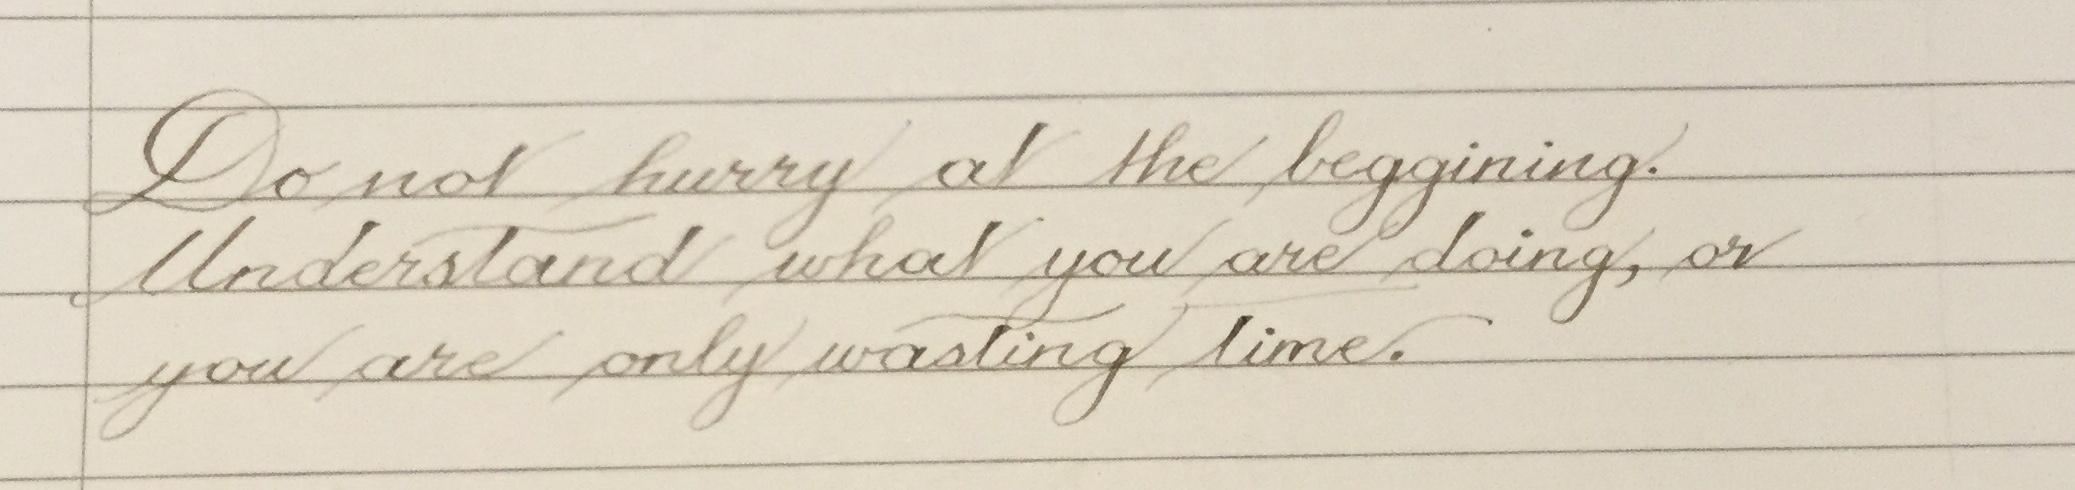 Do not hurry at the beggining.
Understand what you are doing, or
you are only wasting time.